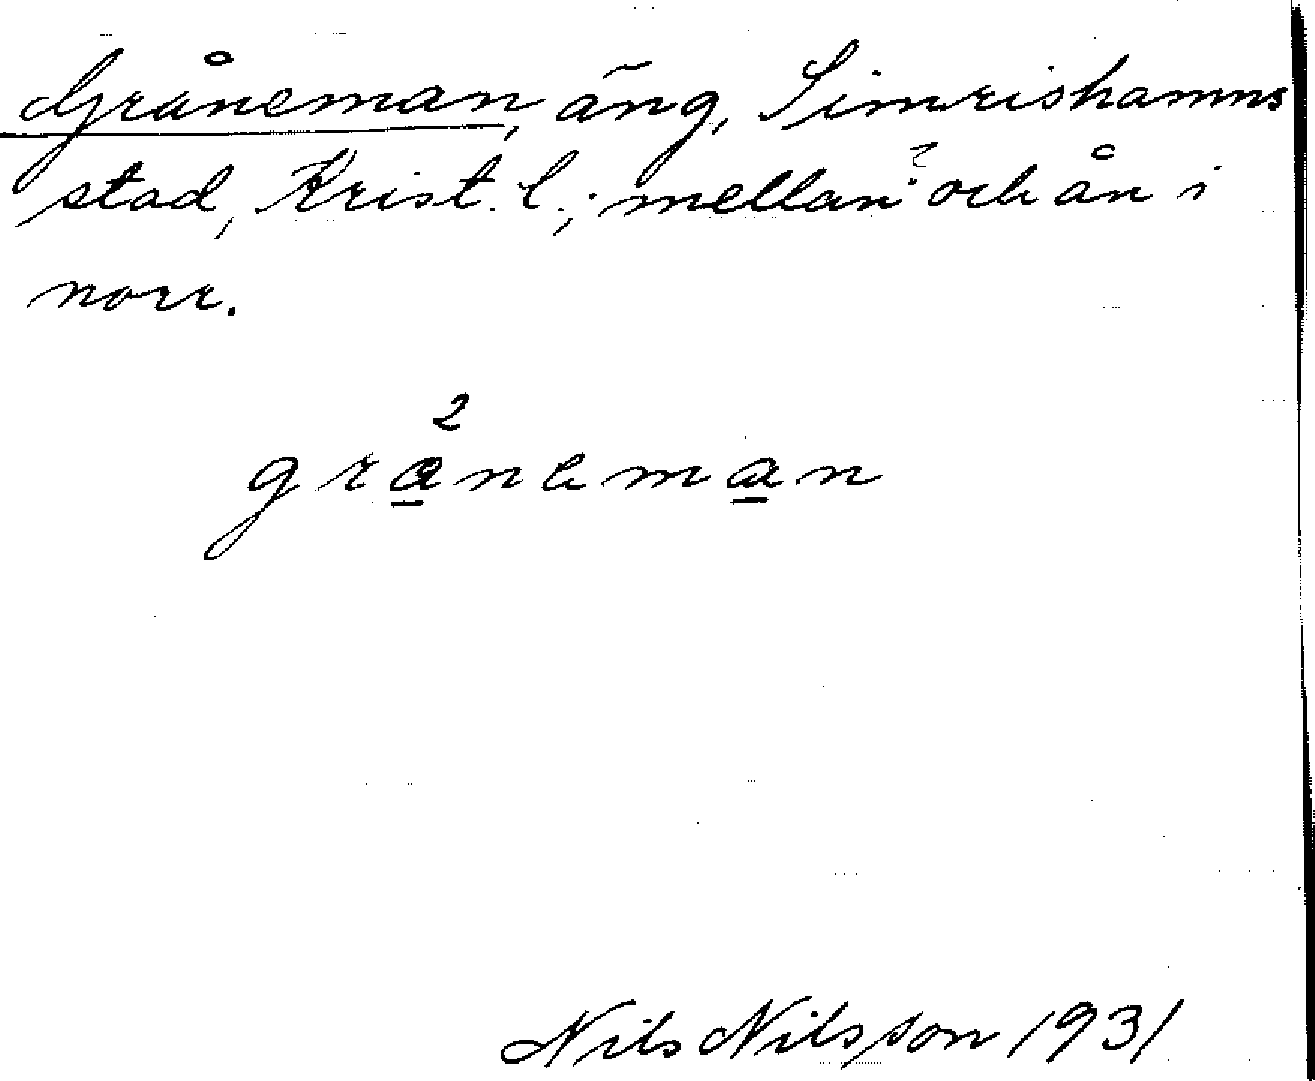 Gråneman, äng, Simrishamns
stad, Krist. l.; mellan ? och ån i
norr.
2
gråneman
Nils Nilsson 1931